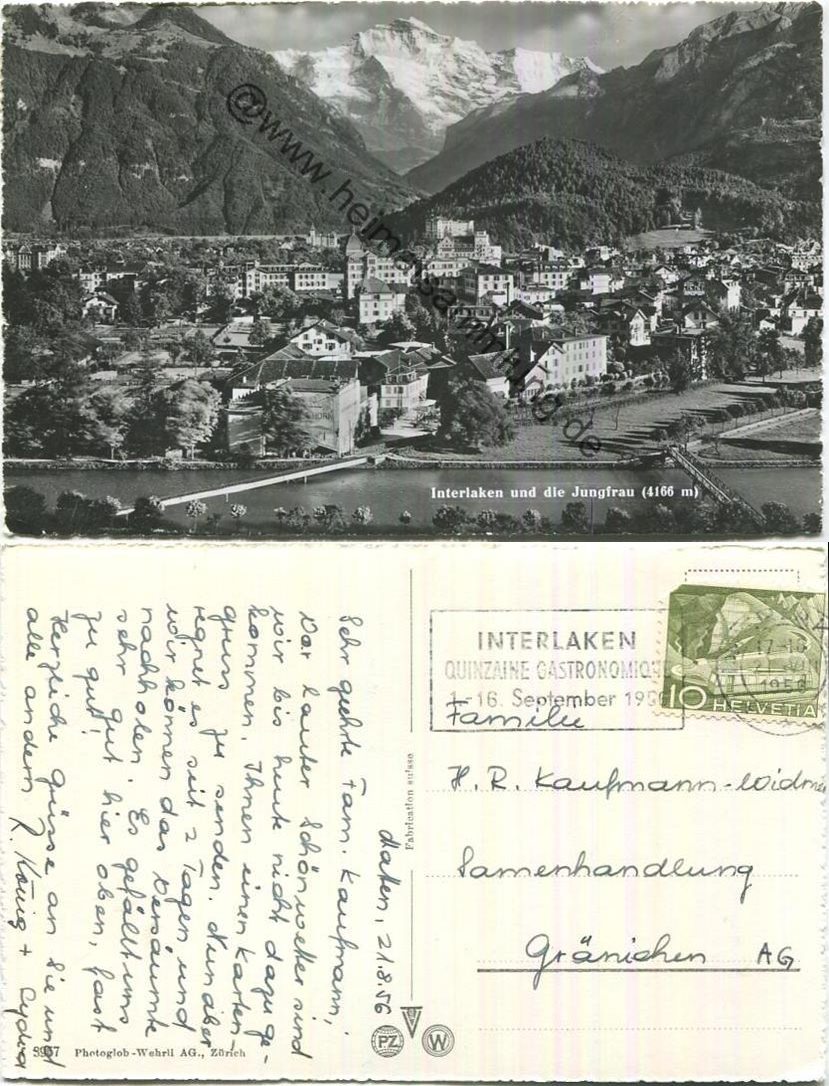 @www.heimatsammlung.de
HORN
Interlaken und die Jungfrau (4166 m)
Matten, 21.8.56
Sehr geehrte Fam. Kaufmann,
Vor lauter Schönwetter sind
wir bis heute nicht dazu ge-
kommen, Ihnen einen Karten-
gruss zu senden. Nun aber
regnet es seit 2 Tagen und
wir können das Versäumte
nachholen. Es gefällt uns
sehr gut hier oben, fast
zu gut!
Herzliche Grüsse an Sie und
alle andern R. König + Lydia
3967 Photoglob-Wehrli AG., Zürich
Fabrication suisse
PZ W
INTERLAKEN
QUINZAINE GASTRONOMIQUE
1.-16. September 1956
17-18
1956
10 HELVETIA
Familie
H. R. Kaufmann-Widmer
Samenhandlung
Gränichen AG